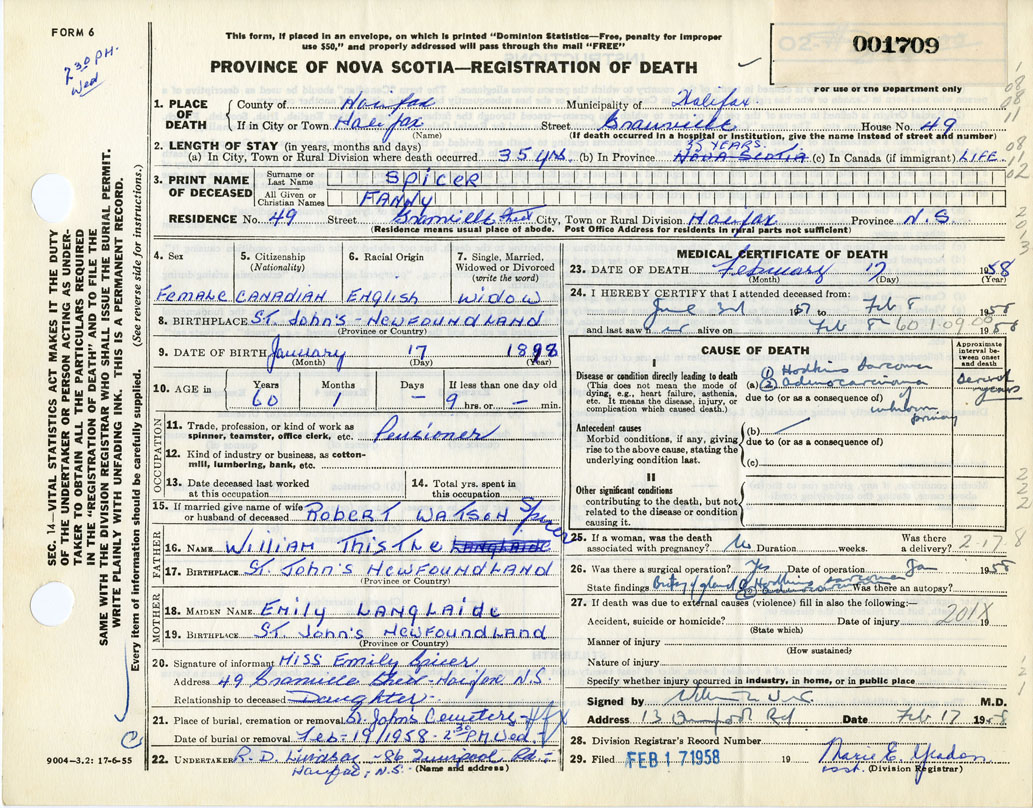 FORM 6
2 30 PM.
Wed
This form, if placed in an envelope, on which is printed "Dominion Statistics—Free, penalty for improper
use $50," and properly addressed will pass through the mail "FREE"
PROVINCE OF NOVA SCOTIA—REGISTRATION OF DEATH
001709
For use of the Department only
1. PLACE OF DEATH
County of Halifax Municipality of Halifax
If in City or Town Halifax Street Granville House No. 49
(Name) (If death occurred in a hospital or institution, give the name instead of street and number)
2. LENGTH OF STAY (in years, months and days)
35 YEARS.
(a) In City, Town or Rural Division where death occurred 35 yrs. (b) In Province NOVA SCOTIA (c) In Canada (if immigrant) LIFE.
3. PRINT NAME OF DECEASED
Surname or Last Name SPICER
All Given or Christian Names FANNY
RESIDENCE No. 49 Street Granville Street City, Town or Rural Division Halifax Province N.S.
(Residence means usual place of abode. Post Office Address for residents in rural parts not sufficient)
SEC. 14—VITAL STATISTICS ACT MAKES IT THE DUTY
OF THE UNDERTAKER OR PERSON ACTING AS UNDER-
TAKER TO OBTAIN ALL THE PARTICULARS REQUIRED
IN THE "REGISTRATION OF DEATH" AND TO FILE THE
SAME WITH THE DIVISION REGISTRAR WHO SHALL ISSUE THE BURIAL PERMIT.
WRITE PLAINLY WITH UNFADING INK. THIS IS A PERMANENT RECORD.
Every item of information should be carefully supplied. (See reverse side for instructions.)
4. Sex
5. Citizenship (Nationality)
6. Racial Origin
7. Single, Married, Widowed or Divorced (write the word)
Female CANADIAN English Widow
8. BIRTHPLACE ST. JOHN'S - NEWFOUNDLAND
(Province or Country)
9. DATE OF BIRTH January 17 1898
(Month) (Day) (Year)
10. AGE in
Years Months Days If less than one day old
60 1 — 9 hrs. or — min.
OCCUPATION
11. Trade, profession, or kind of work as
spinner, teamster, office clerk, etc. Pensioner
12. Kind of industry or business, as cotton-
mill, lumbering, bank, etc.
13. Date deceased last worked
at this occupation
14. Total yrs. spent in
this occupation
15. If married give name of wife
or husband of deceased ROBERT WATSON Spicer
FATHER
16. NAME William Thistle LANGLAIDE
17. BIRTHPLACE ST. John's NEWFOUNDLAND
(Province or Country)
MOTHER
18. MAIDEN NAME Emily LANGLAIDE
19. BIRTHPLACE ST. John's NEWFOUNDLAND
(Province or Country)
20. Signature of informant Miss Emily Spicer
Address 49 Granville Street Halifax N.S.
Relationship to deceased Daughter
21. Place of burial, cremation or removal St. Johns Cemetery - Hfx
Date of burial or removal Feb-19/1958 - 2 30 PM Wed -
22. UNDERTAKER R. D. - 86 Quinpool Rd -
Halifax, N.S. (Name and address)
9004—3.2: 17-6-55
MEDICAL CERTIFICATE OF DEATH
23. DATE OF DEATH February 17 1958
(Month) (Day) (Year)
24. I HEREBY CERTIFY that I attended deceased from:
June 3rd 1957 to Feb 8 1958
and last saw her alive on Feb 8 1958
60109
CAUSE OF DEATH
Approximate interval between onset and death
I
Disease or condition directly leading to death
(This does not mean the mode of
dying, e.g., heart failure, asthma,
etc. It means the disease, injury, or
complication which caused death.)
(a) (1) Hodkins Sarcoma
(2) Adenocarcinoma
Several years
due to (or as a consequence of)
unknown
primary
Antecedent causes
Morbid conditions, if any, giving
rise to the above cause, stating the
underlying condition last.
(b)
due to (or as a consequence of)
(c)
II
Other significant conditions
contributing to the death, but not
related to the disease or condition
causing it.
25. If a woman, was the death
associated with pregnancy? No Duration weeks. Was there
a delivery?
2-17-8
26. Was there a surgical operation? Yes Date of operation Jan 1958
State findings Biopsy gland (1) Hodkins sarcoma
(2) adenocarcinoma Was there an autopsy?
27. If death was due to external causes (violence) fill in also the following:—
201X
Accident, suicide or homicide? Date of injury 19
(State which)
Manner of injury
(How sustained)
Nature of injury
Specify whether injury occurred in industry, in home, or in public place
Signed by M.D.
Address Rd Date Feb 17 1958
28. Division Registrar's Record Number
29. Filed FEB 17 1958 19 Marie E. Yeadon
asst. (Division Registrar)